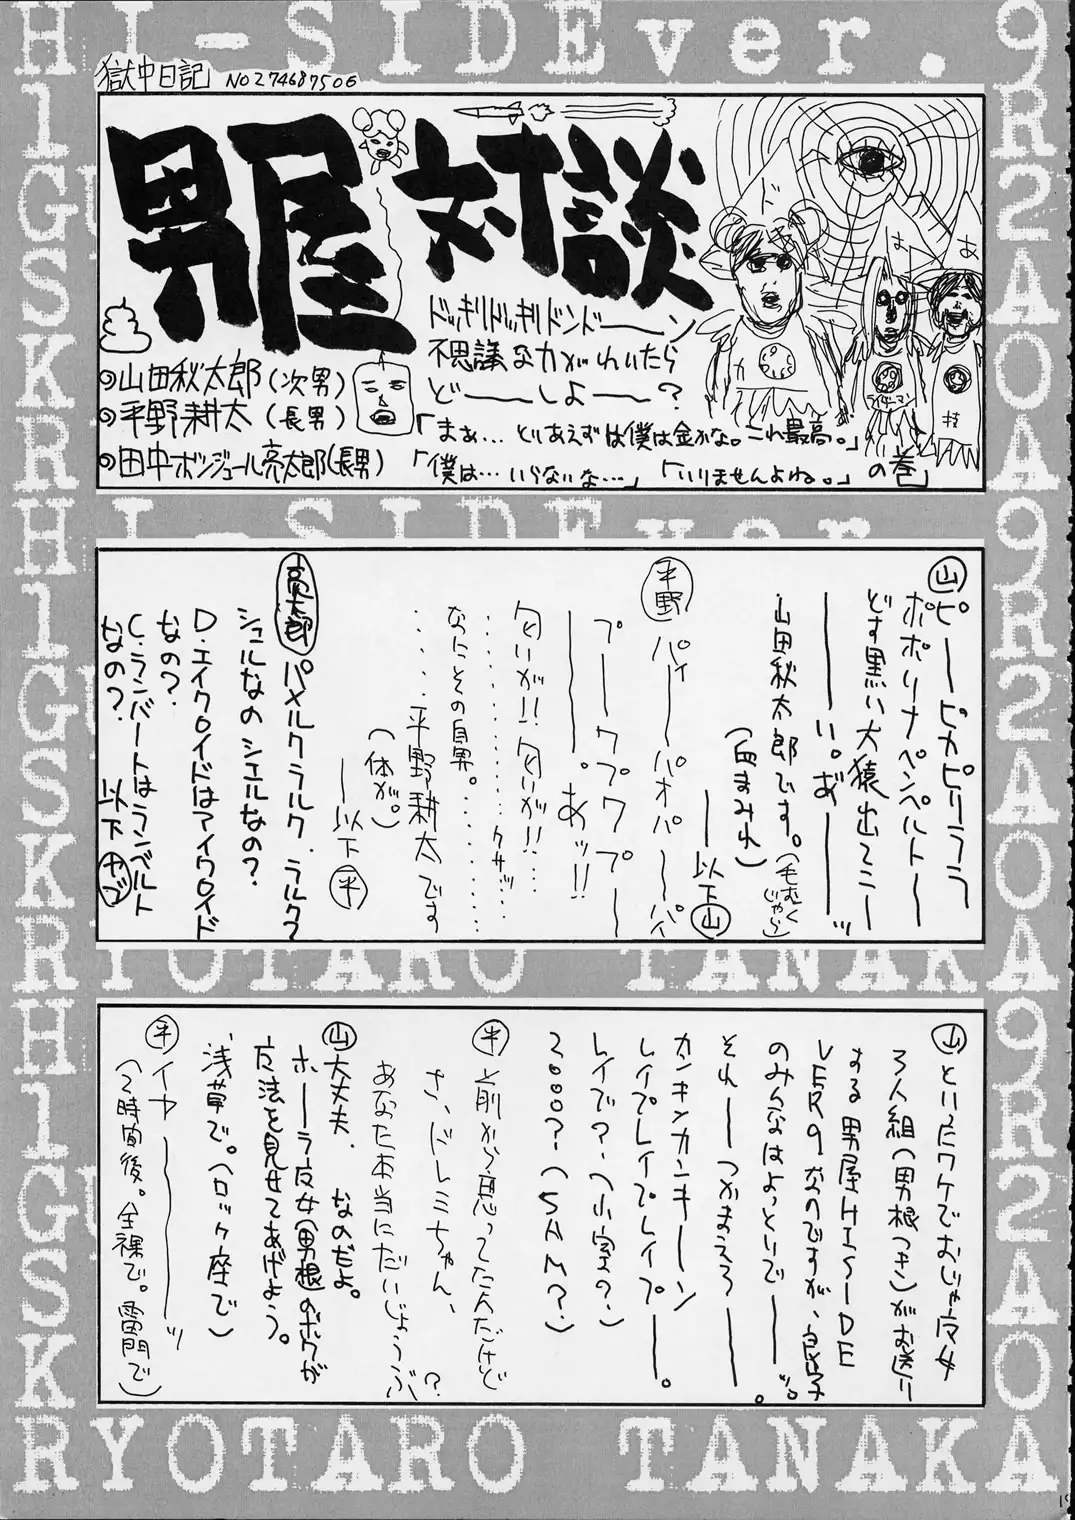 HI-SIDEver.
獄中日記 NO274687506
男屋対談
ドッキリドッキリドンドーーン
不思議な力がわいたら
どーーしよーー?
◎山田秋太郎(次男)
◎平野耕太(長男)
◎田中ボンジュール亮太郎(長男)
「まあ…とりあえずは僕は金かな。これ最高。」
「僕は…いらないな…」
「いりませんよね。」
の巻
山 ピーーピカピリララ
ポポリナペンペルトー
どす黒い大猿出てこー
ーーい。あ゛ーーッ
山田秋太郎です。(毛むくじゃら)
(血まみれ)
ーー以下山
平野 パイーーパオパーパ
プーークワプワプー
ーーー。あッ!!
匂いが!!匂いが!!…
………クサッ…
なにとその自男。………
………平野耕太です
(体が。)
ーー以下平
亮太郎 パメルクラルク・ラルク?
シュルなのシエルなの?
D・エイクロイドはアイクロイド
なの?
C・ランバートはランベルト
なの?
以下ヤブ
山 といったワケでおじゃ魔女
3人組(男根つき)がお送り
する男屋HISーDE
VER9なのですが、良い子
のみんなはよっといでーーッ。
それーーつかまろろーー。
カンキンカンキーーン
レイプレイプレイプーー。
レイで?(小室の?)
2000?(SAM?)
平 前から思ってたんだけど
さ、ドレミちゃん、
あなた本当にだいじょうぶ?
山 大丈夫、なのだよ。
ホーーラ魔女(男根のボクが
魔法を見せてあげよう。
浅草で。(ロック座で)
平 イヤーーーーッ
(2時間後。全裸で。雷門で)
RYOTARO TANAKA